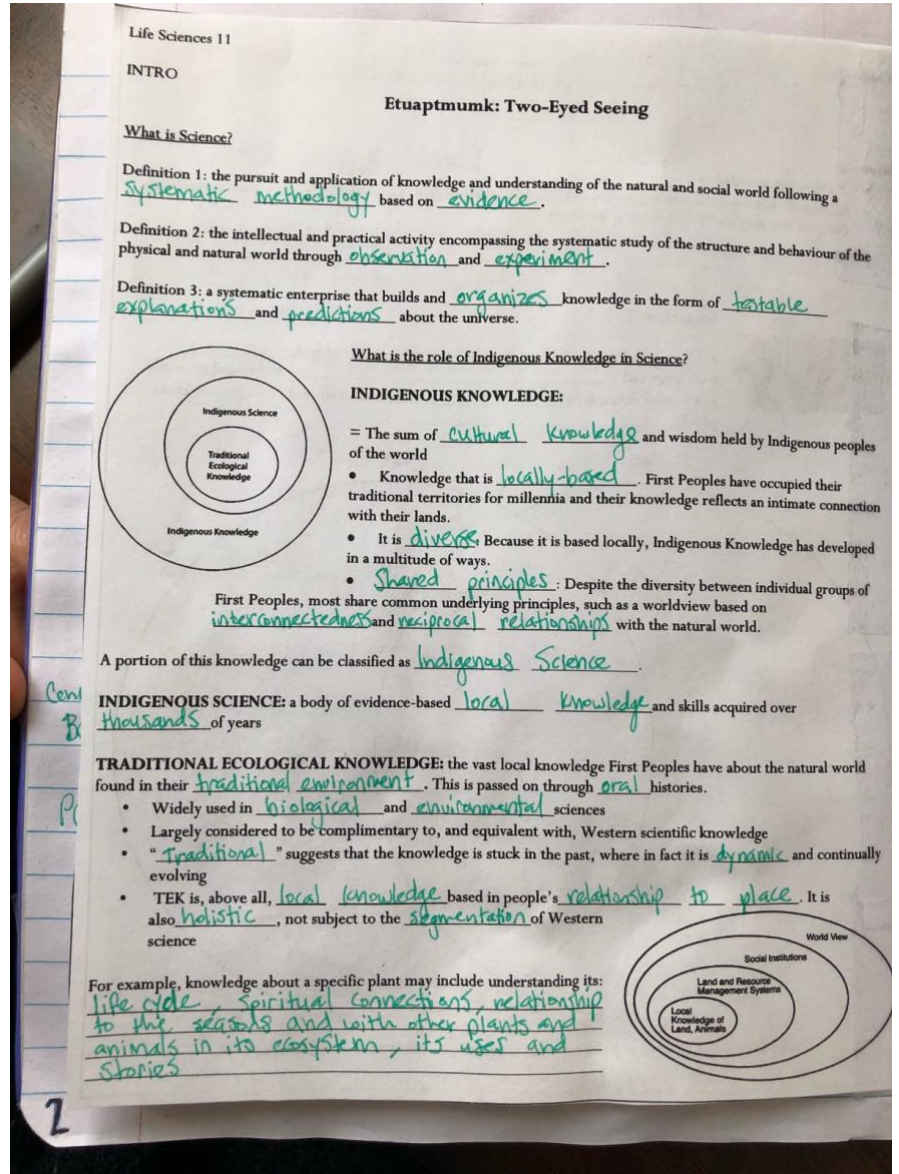 Life Sciences 11
INTRO
Etuaptmumk: Two-Eyed Seeing
What is Science?
Definition 1: the pursuit and application of knowledge and understanding of the natural and social world following a
systematic methodology based on evidence.
Definition 2: the intellectual and practical activity encompassing the systematic study of the structure and behaviour of the
physical and natural world through observation and experiment.
Definition 3: a systematic enterprise that builds and organizes knowledge in the form of testable
explanations and predictions about the universe.
What is the role of Indigenous Knowledge in Science?
Indigenous Science
Traditional
Ecological
Knowledge
Indigenous Knowledge
INDIGENOUS KNOWLEDGE:
= The sum of cultural knowledge and wisdom held by Indigenous peoples
of the world
• Knowledge that is locally-based. First Peoples have occupied their
traditional territories for millennia and their knowledge reflects an intimate connection
with their lands.
• It is diverse. Because it is based locally, Indigenous Knowledge has developed
in a multitude of ways.
• Shared principles: Despite the diversity between individual groups of
First Peoples, most share common underlying principles, such as a worldview based on
interconnectedness and reciprocal relationships with the natural world.
A portion of this knowledge can be classified as Indigenous Science.
INDIGENOUS SCIENCE: a body of evidence-based local knowledge and skills acquired over
thousands of years
TRADITIONAL ECOLOGICAL KNOWLEDGE: the vast local knowledge First Peoples have about the natural world
found in their traditional environment. This is passed on through oral histories.
• Widely used in biological and environmental sciences
• Largely considered to be complimentary to, and equivalent with, Western scientific knowledge
• "Traditional" suggests that the knowledge is stuck in the past, where in fact it is dynamic and continually
evolving
• TEK is, above all, local knowledge based in people's relationship to place. It is
also holistic, not subject to the segmentation of Western
science
For example, knowledge about a specific plant may include understanding its:
life cycle, spiritual connections, relationship
to the seasons and with other plants and
animals in its ecosystem, its uses and
stories
World View
Social Institutions
Land and Resource
Management Systems
Local
Knowledge of
Land, Animals
2